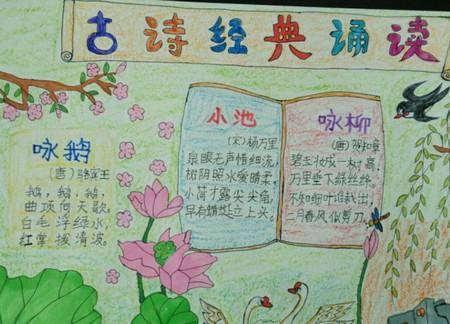 古诗经典诵读
咏鹅
(唐)骆宾王
鹅,鹅,鹅,
曲项向天歌,
白毛浮绿水,
红掌拨清波。
小池
(宋)杨万里
泉眼无声惜细流,
树阴照水爱晴柔,
小荷才露尖尖角,
早有蜻蜓立上头。
咏柳
(唐)贺知章
碧玉妆成一树高,
万里垂下绿丝绦。
不知细叶谁裁出,
二月春风似剪刀。